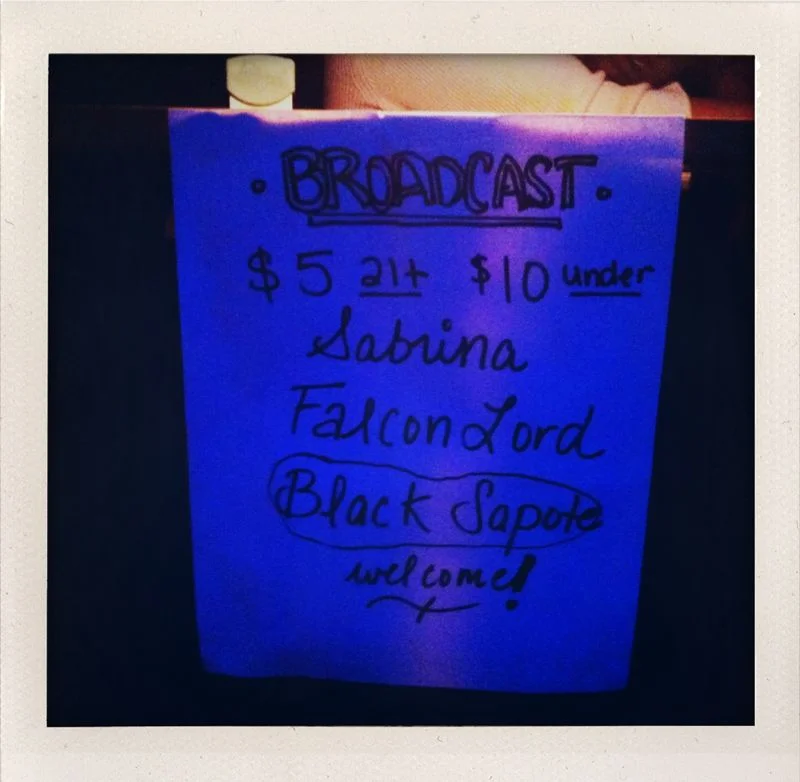 • BROADCAST •
$5 21+ $10 under
Sabrina
Falcon Lord
Black Sapote
welcome!